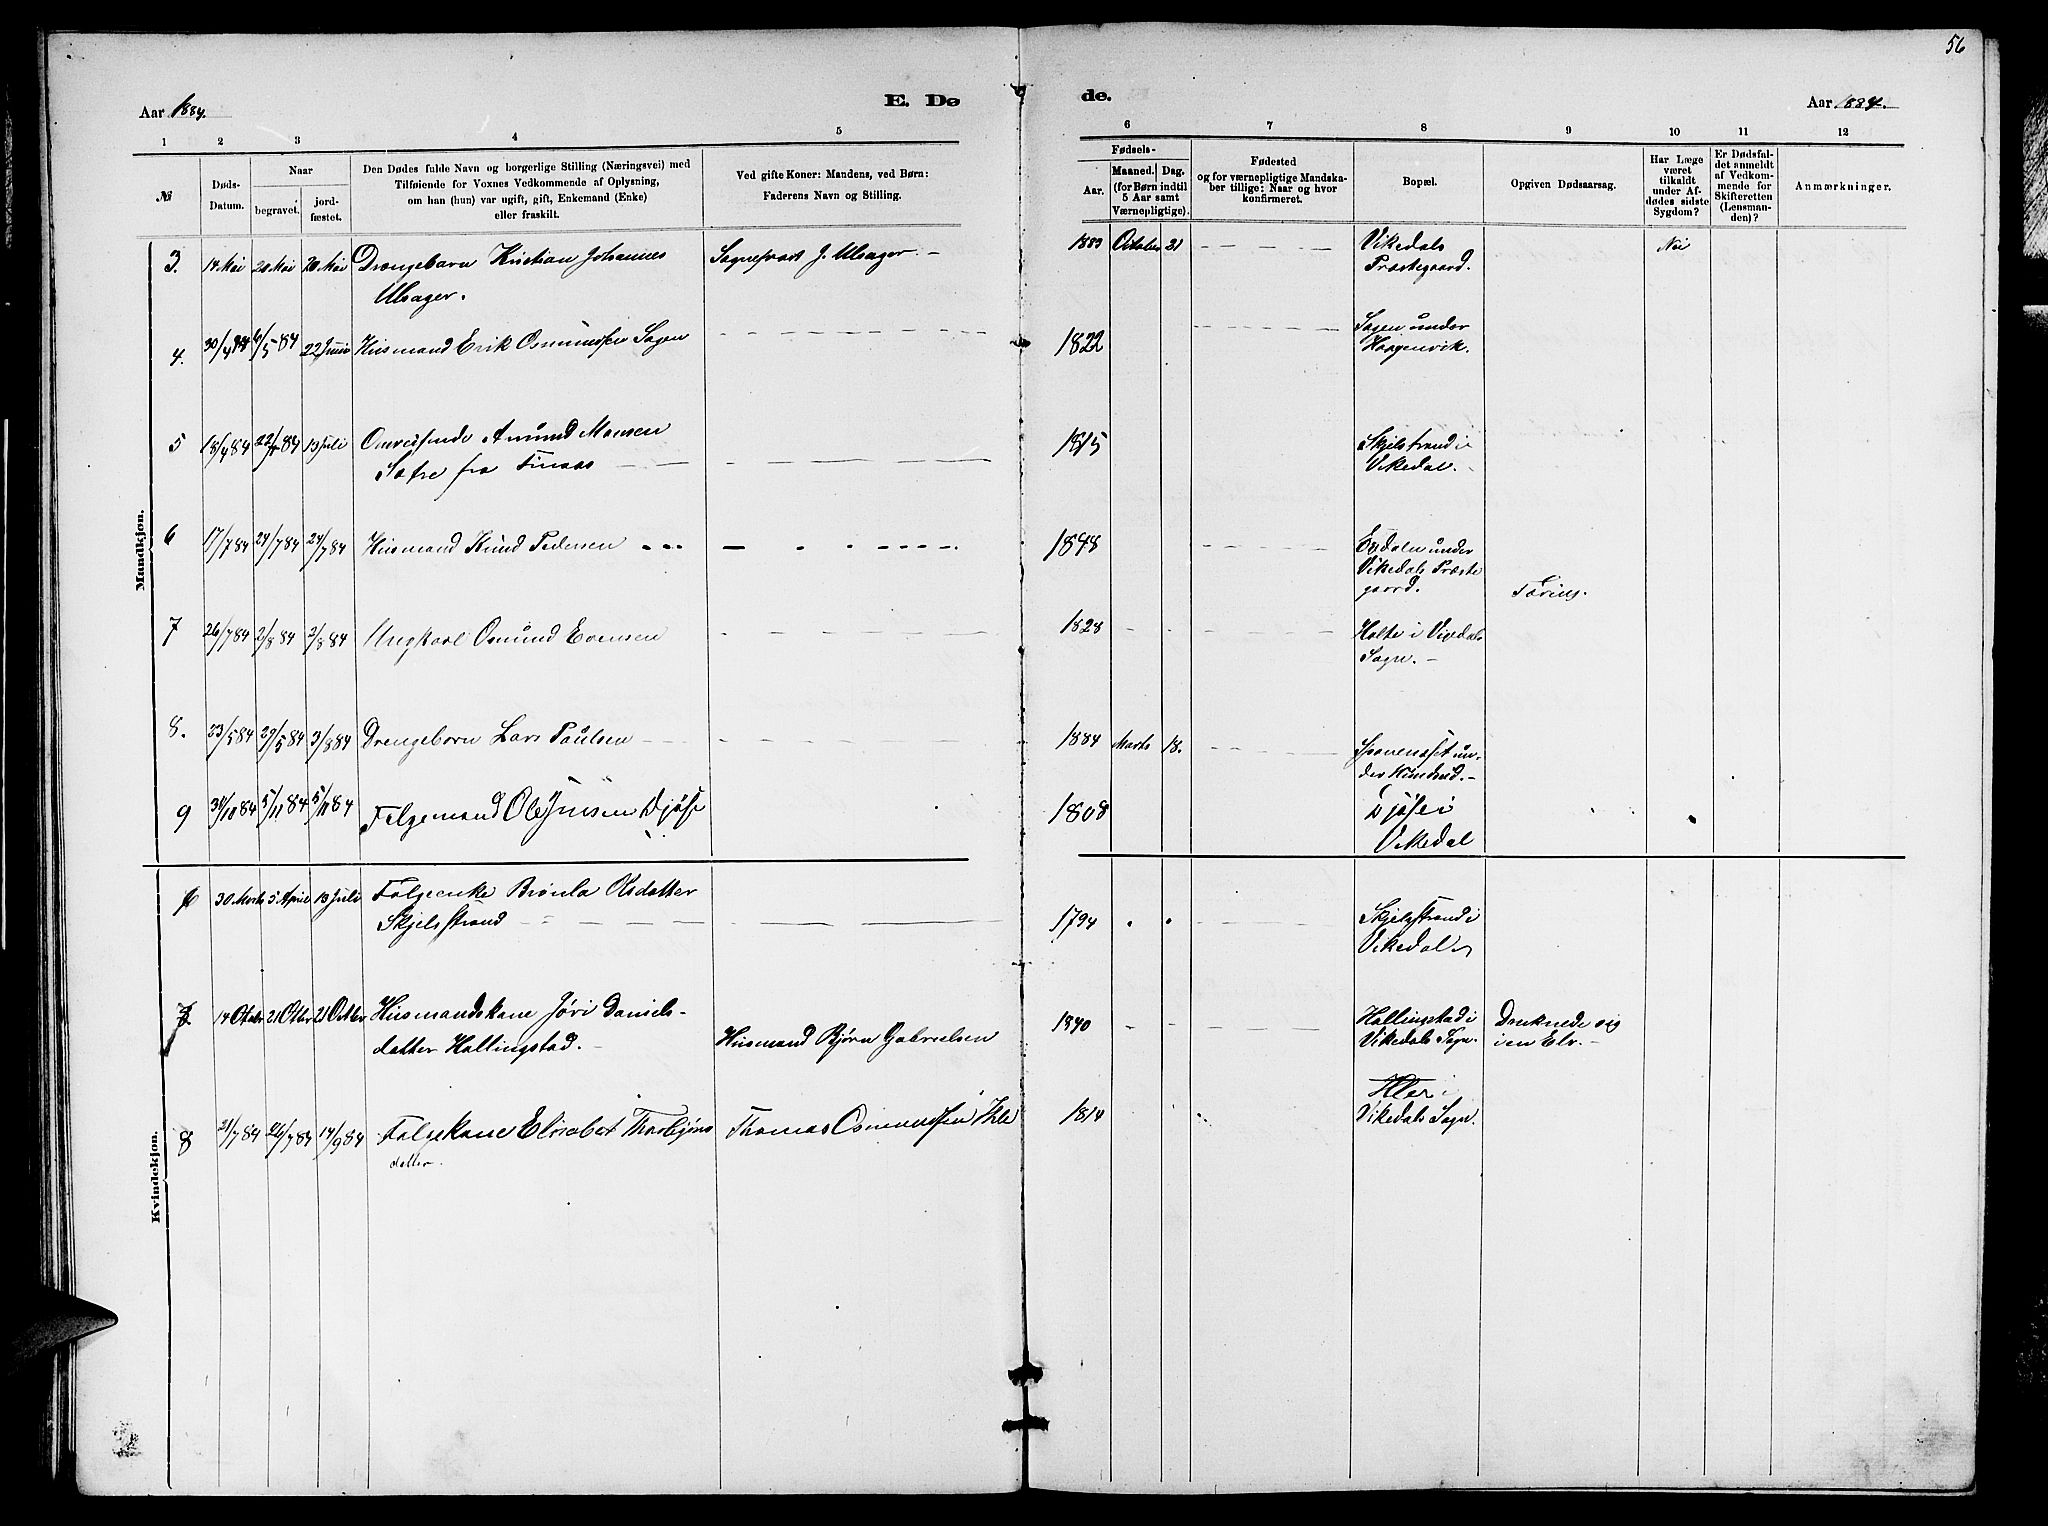 56
Aar 1884.
E. Dø
de.
Aar 1884.
1 2 3 4 5 6 7 8 9 10 11 12
№
Døds-
Datum.
Naar
begravet.
jord-
fæstet.
Den Dødes fulde Navn og borgerlige Stilling (Næringsvei) med
Tilføiende for Voxnes Vedkommende af Oplysning,
om han (hun) var ugift, gift, Enkemand (Enke)
eller fraskilt.
Ved gifte Koner: Mandens, ved Børn:
Faderens Navn og Stilling.
Fødsels-
Aar.
Maaned. Dag.
(for Børn indtil
5 Aar samt
Værnepligtige).
Fødested
og for værnepligtige Mandska-
ber tillige: Naar og hvor
konfirmeret.
Bopæl.
Opgiven Dødsaarsag.
Har Læge
været
tilkaldt
under Af-
dødes sidste
Sygdom?
Er Dødsfal-
det anmeldt
af Vedkom-
mende for
Skifteretten
(Lensman-
den)?
Anmærkninger.
Mandkjøn.
3. 14 Mai 20 Mai 20 Mai Drengebarn Kristian Johannes Sognepræst J. Ulsager. 1883 October 21 Vikedals Nei
Ulsager. Præstegaard.
4. 30/4 84 9/5 84 22 Juni Husmand Erik Osmundsen Sagen 1822 Sagen under
Haagenvik.
5 18/4 84 84 13 Juli Omreisende Amund Monsen 1815 Skjelstrand i
Sætre fra Finaas Vikedal.
6 17/7 84 24/7 84 24/7 84 Husmand Knud Pedersen 1848 under
Vikedals Præste
gaard. Tæring.
7 26/7 84 2/8 84 2/8 84 Ungkarl Osmund Evensen 1828 Holte i Vikedals
Sogn.
8. 23/5 84 29/5 84 3/8 84 Drengebarn Lars Paulsen 1884 Marts 18. un-
der
9 30/10 84 5/11 84 5/11 84 Følgemand Ole Jensen Djøse 1808 Djøse i
Vikedal
Kvindekjøn.
6 30 Marts 5 April 13 Juli Følgeenke Brønla Olsdatter 1794 Skjelstrand i
Skjelsstrand Vikedal
7 14 Octobr 21 Octbr 21 Octbr Husmandskone Jøri Daniels- Husmand Bjørn Gabrielsen 1840 Hallingstad i Druknede sig
datter Hallingstad. Vikedals Sogn. i en Elv.
8 21/7 84 26/7 84 14/9 84 Følgekone Elisabet Thorbjørns Thomas Osmundsen Ihle 1814 Iler i
datter. Vikedals Sogn.